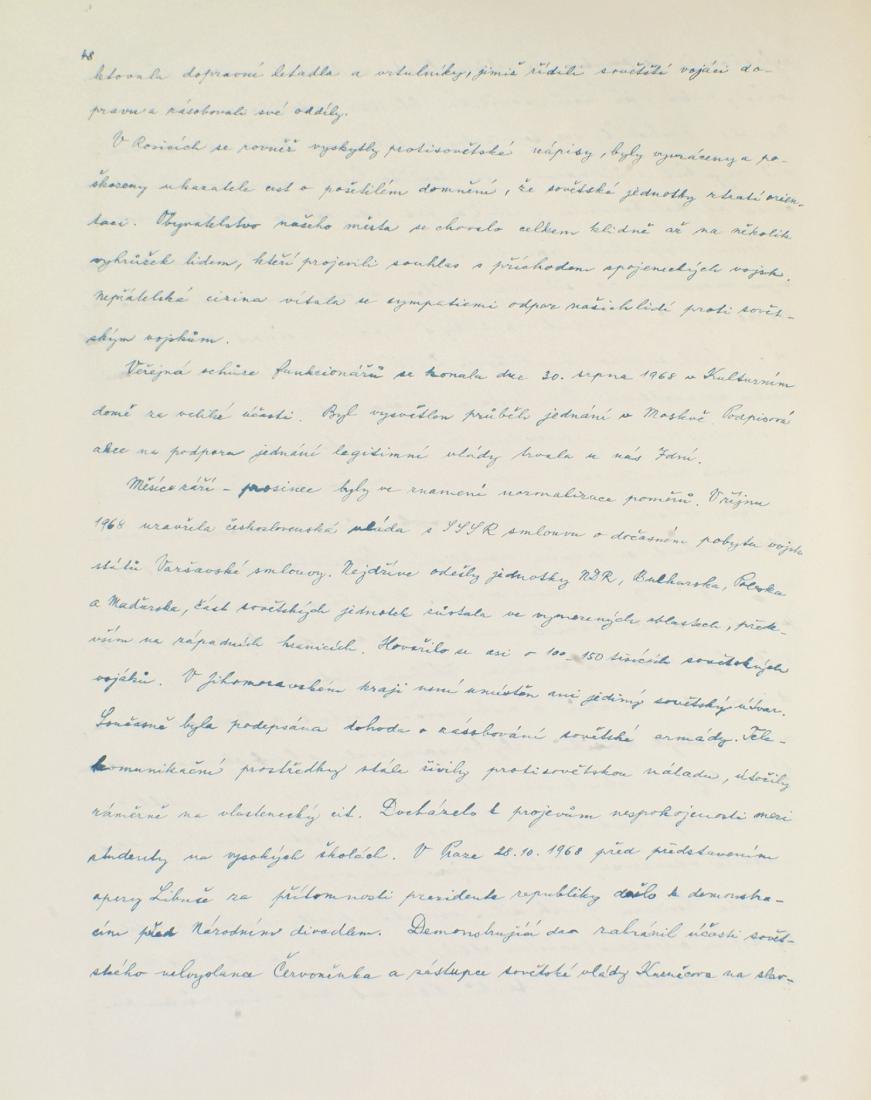 48
ktovala dopravní letadla a vrtulníky, jimiž řídili sovětští vojáci do-
pravu a zásobovali své oddíly.
V Rosicích se rovněž vyskytly protisovětské nápisy, byly vyvráceny a po-
škozeny ukazatele cest o pošetilém domnění, že sovětské jednotky ztratí orien-
taci. Obyvatelstvo našeho města se chovalo celkem klidně až na několik
vyhrůžek lidem, kteří projevili souhlas s příchodem spojeneckých vojsk.
Nepřátelská cizina vítala se sympatiemi odpor našich lidí proti sovět-
ským vojskům.
Veřejná schůze funkcionářů se konala dne 30. srpna 1968 v Kulturním
domě za veliké účasti. Byl vysvětlen průběh jednání v Moskvě. Podpisová
akce na podporu jednání legitimní vlády trvala u nás 7 dní.
Měsíce září - prosinec byly ve znamení normalizace poměrů. V říjnu
1968 uzavřela československá vláda s SSSR smlouvu o dočasném pobytu vojsk
států Varšavské smlouvy. Nejdříve odešly jednotky NDR, Bulharska, Polska
a Maďarska, část sovětských jednotek zůstala ve vymezených oblastech, přede-
vším na západních hranicích. Hovořilo se asi o 100-150 tisících sovětských
vojáků. V Jihomoravském kraji není umístěn ani jediný sovětský útvar.
Současně byla podepsána dohoda o zásobování sovětské armády. Tele-
komunikační prostředky stále živily protisovětskou náladu, útočily
záměrně na vlastenecký cit. Docházelo k projevům nespokojenosti mezi
studenty na vysokých školách. V Praze 28.10.1968 před představením
opery Libuše za přítomnosti presidenta republiky došlo k demonstra-
cím před Národním divadlem. Demonstrující dav zabránil účasti sovět-
ského velvyslance Červoněnka a zástupce sovětské vlády Kuzněcova na slav-